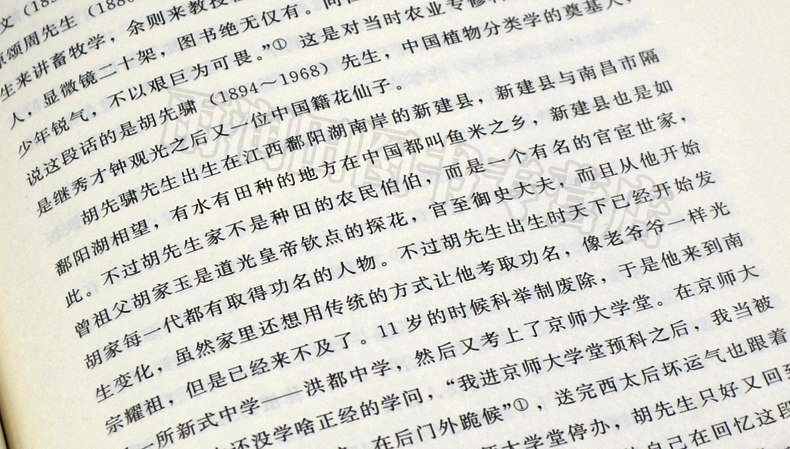 文（189
原颂周先生（1886
生来讲畜牧学，余则来教授植
人，显微镜二十架，图书绝无仅有。同在
少年锐气，不以艰巨为可畏。”① 这是对当时农业专修科
说这段话的是胡先骕（1894～1968）先生，中国植物分类学的奠基人，
是继秀才钟观光之后又一位中国籍花仙子。
胡先骕先生出生在江西鄱阳湖南岸的新建县，新建县与南昌市隔
鄱阳湖相望，有水有田种的地方在中国都叫鱼米之乡，新建县也是如
此。不过胡先生家不是种田的农民伯伯，而是一个有名的官宦世家，
曾祖父胡家玉是道光皇帝钦点的探花，官至御史大夫，而且从他开始
胡家每一代都有取得功名的人物。不过胡先生出生时天下已经开始发
生变化，虽然家里还想用传统的方式让他考取功名，像老爷爷一样光
宗耀祖，但是已经来不及了。11 岁的时候科举制废除，于是他来到南
一所新式中学——洪都中学，然后又考上了京师大学堂。在京师大
还没学啥正经的学问，“我进京师大学堂预科之后，我当被
在后门外跪候”①，送完西太后坏运气也跟着
大学堂停办，胡先生只好又回到
自己在回忆这段